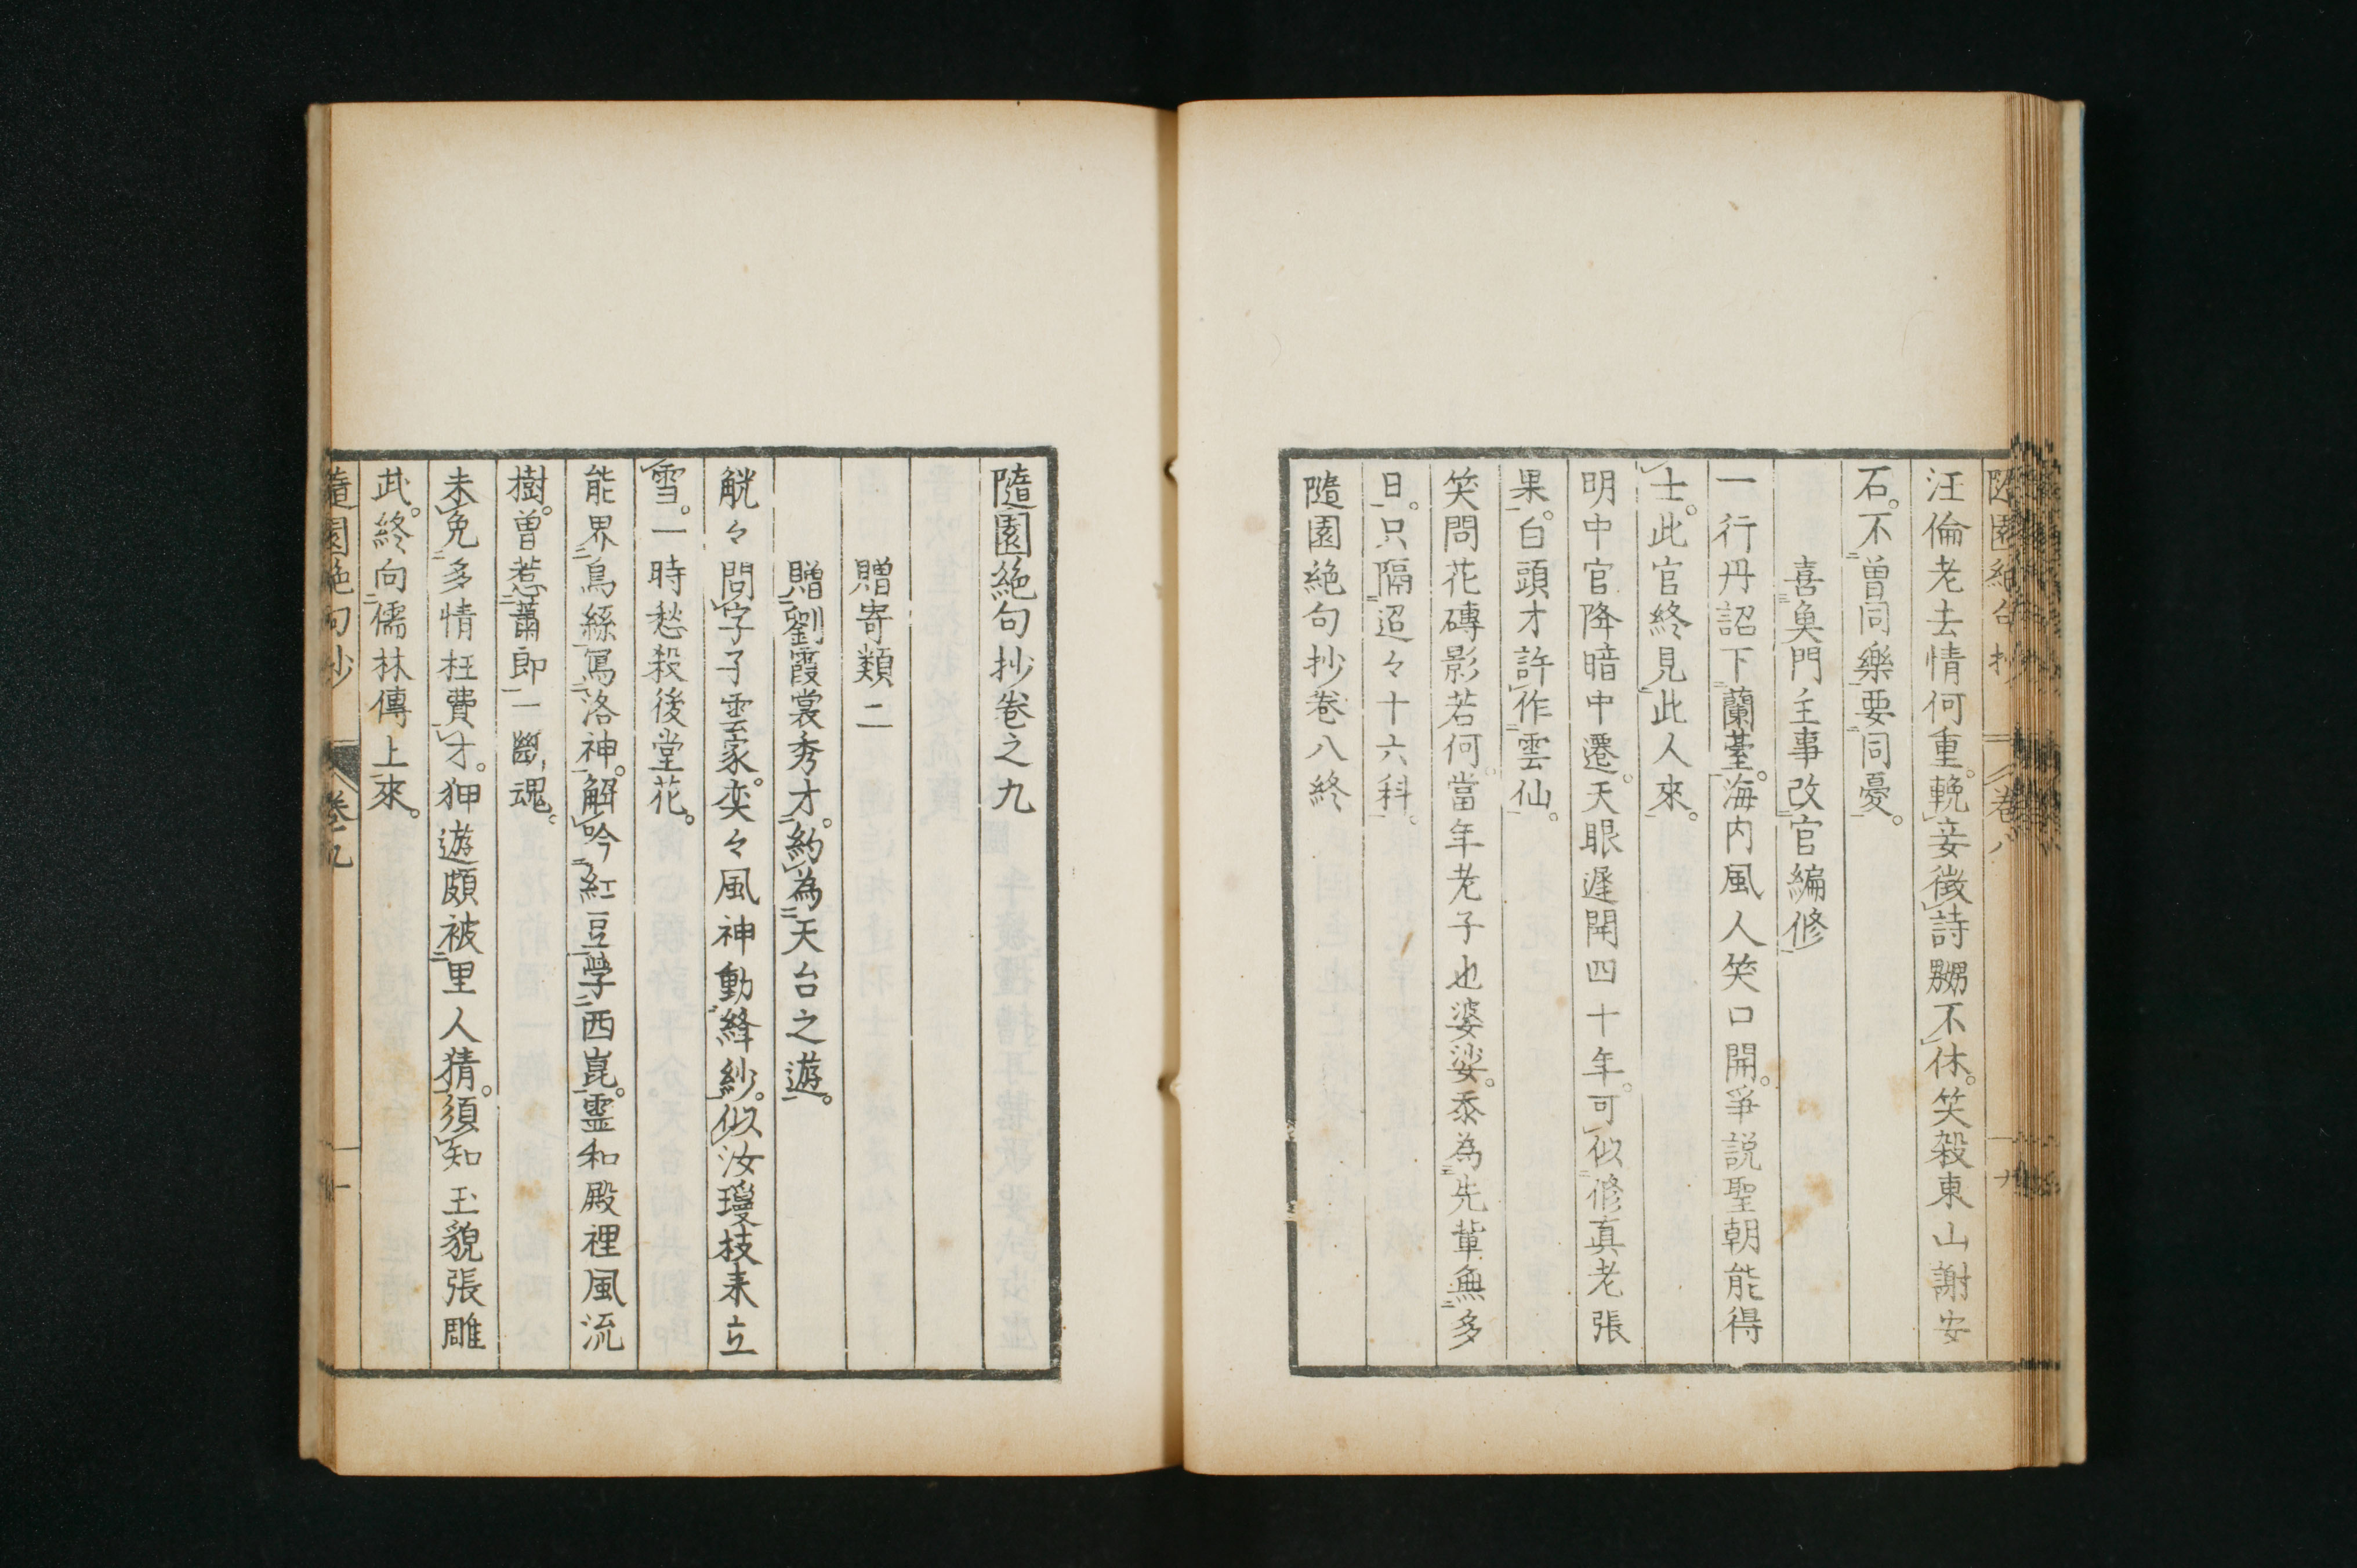 隨園絶句抄 卷八
汪倫老去情何重。輓妾徴詩嬲不休。笑殺東山謝安
石。不曽同樂要同憂。
喜奐門主事改官編修
一行丹詔下蘭臺。海内風人笑口開。爭説聖朝能得
士。此官終見此人來。
明中官降暗中遷。天眼遲開四十年。可似修真老張
果。白頭才許作雲仙。
笑問花磚影若何。當年老子也婆娑。忝為先輩無多
日。只隔迢々十六科。
隨園絶句抄卷八終
隨園絶句抄卷之九
贈寄類二
贈劉霞裳秀才。約為天台之遊。
觥々問字子雲家。奕々風神動絳紗。似汝瓊枝来立
雪。一時愁殺後堂花。
能界烏絲寫洛神。解吟紅豆学西崑。霊和殿裡風流
樹。曽惹蕭郎一斷魂。
未免多情枉費才。狎遊頗被里人猜。須知玉貌張雕
武。終向儒林傳上來。
隨園絶句抄 卷九 一